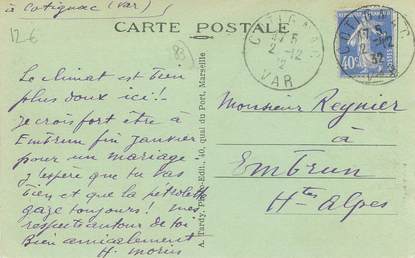 à Cotignac (Var)
CARTE POSTALE
12-6
Le climat est bien
plus doux ici!-
Je crois fort être à
Embrun fin janvier
pour un mariage.
J'espère que tu vas
bien et que la pétrolette
gaze toujours! mes
respects autour de toi
Bien amicalement
H. Morin
A. Tardy, Phot.-Edit., 40, quai du Port, Marseille
COTIGNAC
17 5
2 -12
32
VAR
COTIGNAC
17 5
2 -12
32
40c
Monsieur Reynier
à
Embrun
Htes Alpes